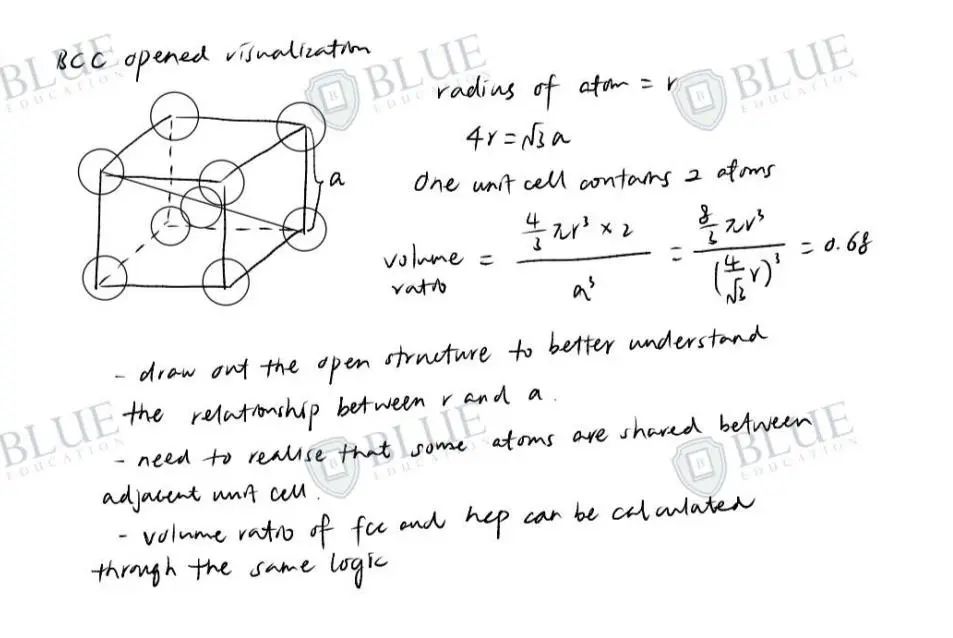 BCC opened visualization
radius of atom = r
4r = √3 a
a
One unit cell contains 2 atoms
volume ratio = (4/3 πr³ × 2) / a³ = (8/3 πr³) / (4/√3 r)³ = 0.68
- draw out the open structure to better understand
the relationship between r and a.
- need to realise that some atoms are shared between
adjacent unit cell.
- volume ratio of fcc and hcp can be calculated
through the same logic
BLUE EDUCATION
BLUE EDUCATION
BLUE EDUCATION
BLUE EDUCATION
BLUE EDUCATION
BLUE EDUCATION